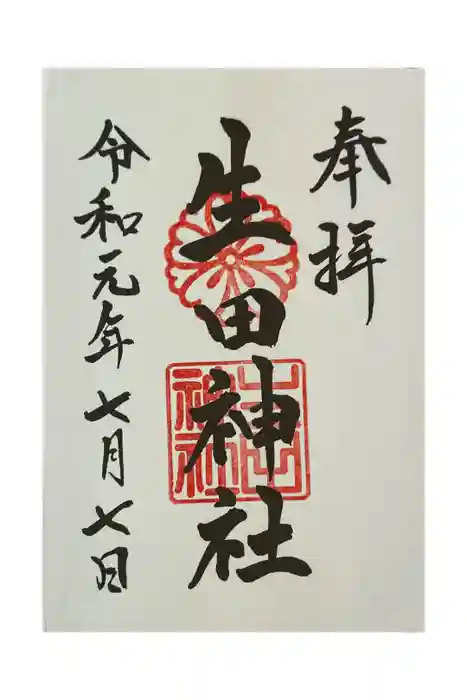 奉拝
生田神社
令和元年七月七日